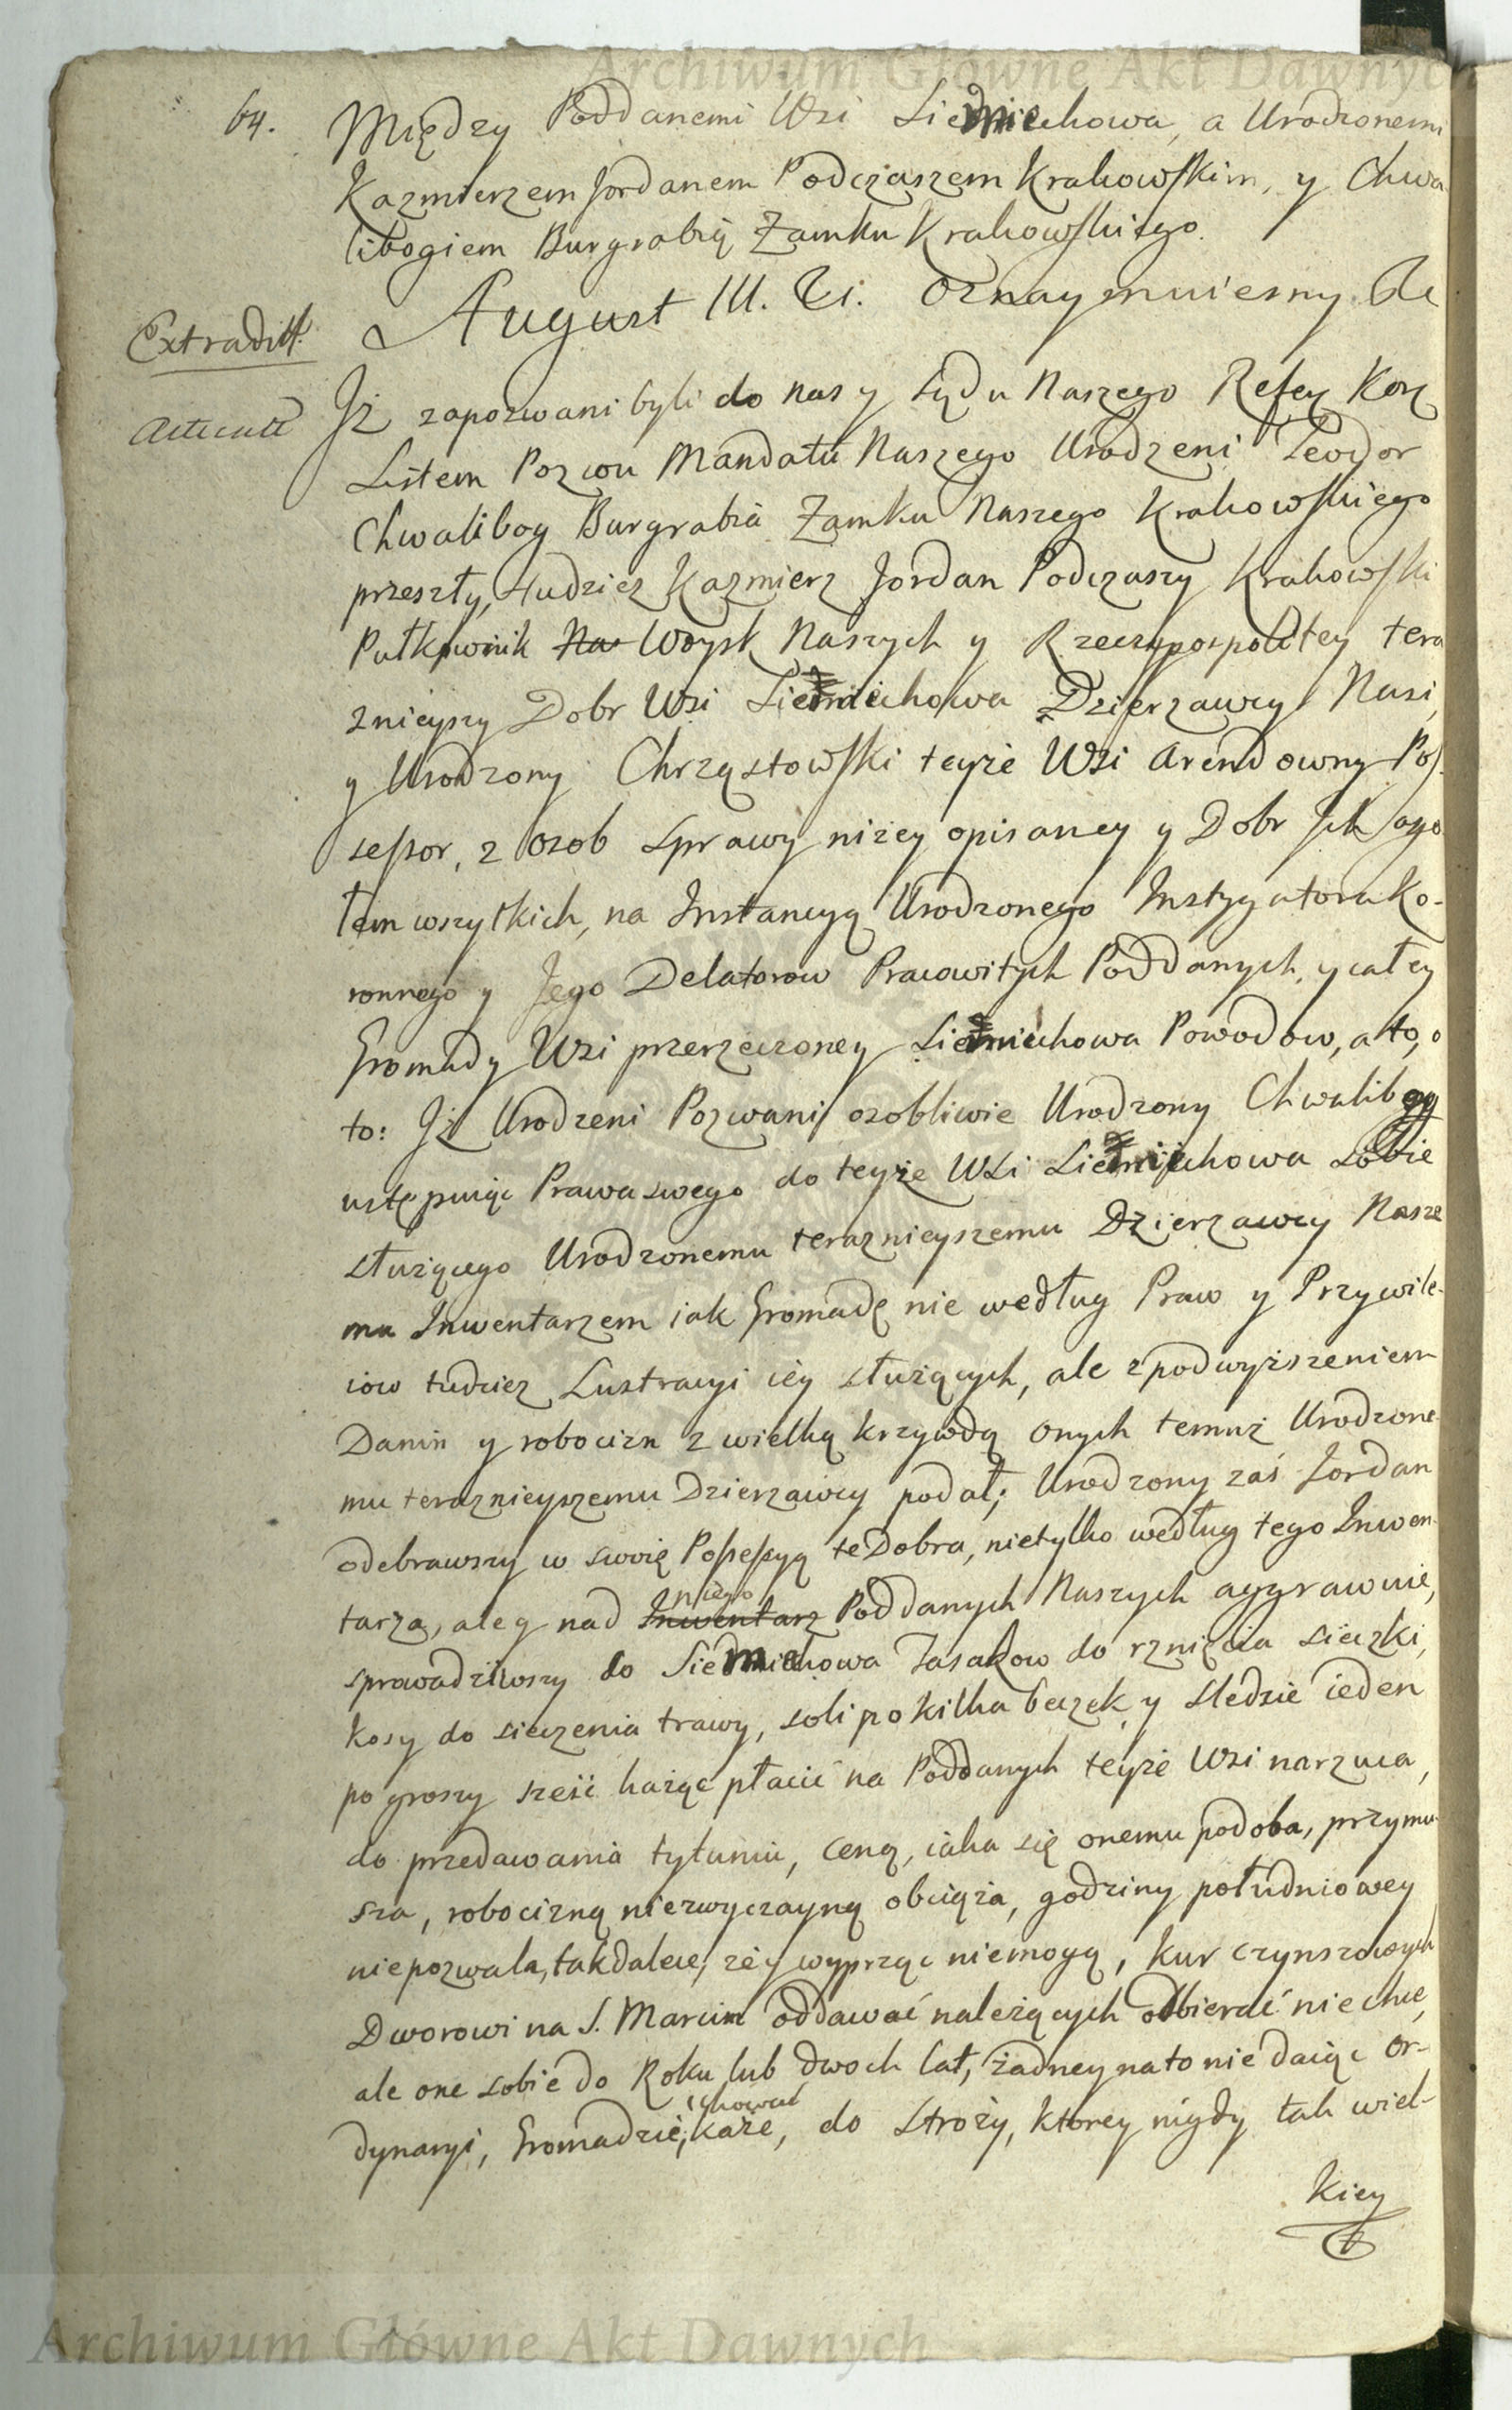 Archiwum Główne Akt Dawnych
64. Między Poddanemi Wsi Siemiechowa, a Urodzonemi
Kazmierzem Jordanem Podczaszem Krakowskim, y Chwa
libogiem Burgrabią Zamku Krakowskiego.
August III. Oznaymuiemy
Extradit.
Iż zapozwani byli do nas y Sądu Naszego Refey Kor
Listem Pozwu Mandatu Naszego Urodzeni Teodor
Chwalibog Burgrabia Zamku Naszego Krakowskiego
przeszły, tudziez Kazmierz Jordan Podczaszy Krakowski
Pułkownik Na Woysk Naszych y Rzeczypospolitey tera
znieyszy Dobr Wsi Siemiechowa Dzierzawcy Nasi,
y Urodzony Chrząstowski teyże Wsi arendowny Pos
sessor, z osob sprawy niżey opisaney y Dobr Ich ogo
łem wszytkich, na Instancyą Urodzonego Instygatora Ko-
ronnego y Jego Delatorow Pracowitych Poddanych, y całey
Gromady Wsi przerzeczoney Siemiechowa Powodow, a to, o
to: Iż Urodzeni Pozwani osobliwie Urodzony Chwalibog
ustępuiąc Prawa swego do teyże Wsi Siemiechowa sobie
służącego Urodzonemu teraznieyszemu Dzierzawcy Nasze
mu Inwentarzem iak Gromadę nie według Praw y Przywile-
iow tudziez Lustracyi iey służących, ale z podwyższeniem
Danin y robocizn z wielką krzywdą onych temuż Urodzone
mu teraznieyszemu Dzierzawcy podał; Urodzony zaś Jordan
odebrawszy w swoię Possessyą te Dobra, nietylko według tego Inwen-
tarza, ale y nad Inwentarz niego Poddanych Naszych aggrawuie,
sprowadziwszy do Siemiechowa Tasakow do rznięcia sieczki,
kosy do sieczenia trawy, soli po kilka beczek y sledzie ieden
po groszy sześć każąc płacić na Poddanych teyże Wsi narzuca,
do przedawania tytuniu, ceną, iaka się onemu podoba, przymu-
sza, robocizną niezwyczayną obciąża, godziny południowey
niepozwala, takdalece, że y wyprząc niemogą, kur czynszowych
Dworowi na S. Marcin oddawać należących odbierać niechce,
ale one sobie do Roku lub dwoch lat, żadney na to nie daiąc or-
dynaryi, Gromadzie, chować każe, do Stroży, ktorey nigdy tak wiel-
kiey
Archiwum Główne Akt Dawnych